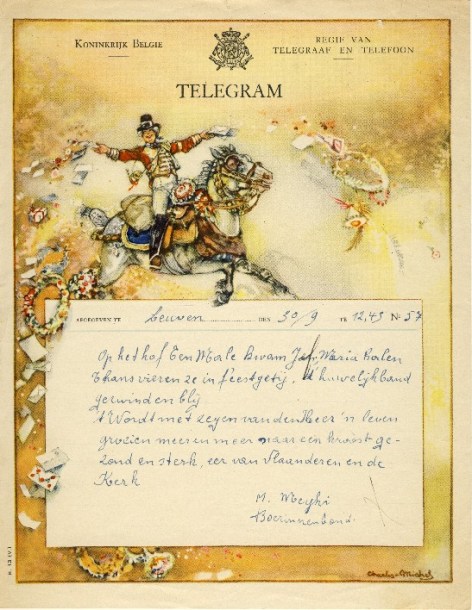 KONINKRIJK BELGIE
REGIE VAN
TELEGRAAF EN TELEFOON
TELEGRAM
AFGEGEVEN TE Leuven DEN 30/9 TE 12,43 Nr 57
Op het hof Ten Male kwam Jef Maria halen
Thans vieren ze in feestgetij, 't huwelijkband
gerwinden blij
't Wordt met zegen van den Heer 'n leven
groeien meer en meer naar een kroost ge-
zond en sterk, eer van Vlaanderen en de
Kerk
M.
Boerinnenbond.
Charles Michel